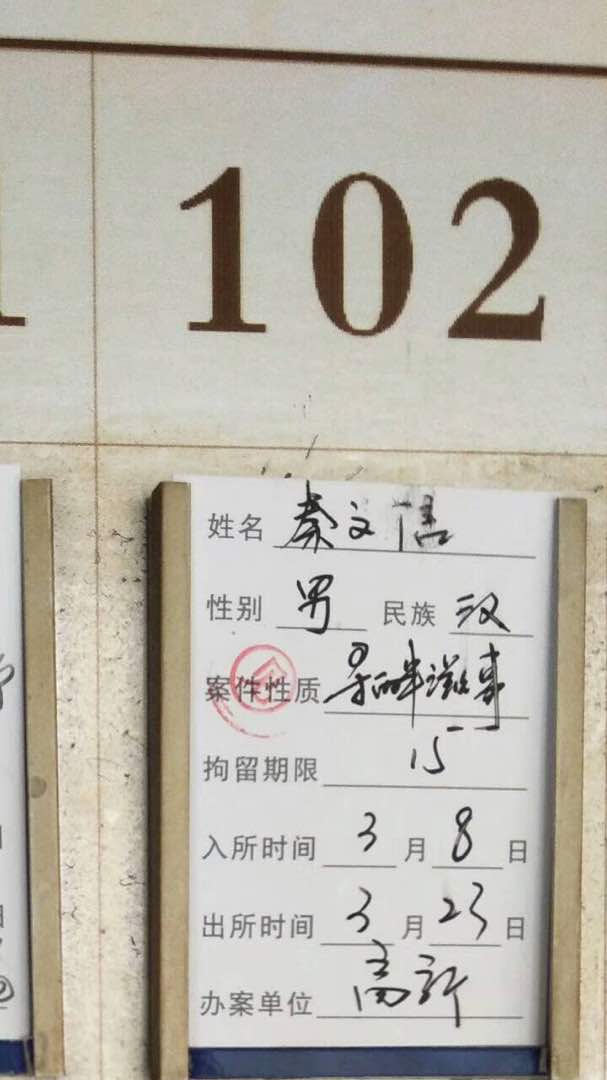 102
姓名 秦文信
性别 男 民族 汉
案件性质 寻衅滋事
拘留期限 15
入所时间 3月8日
出所时间 3月23日
办案单位 高新